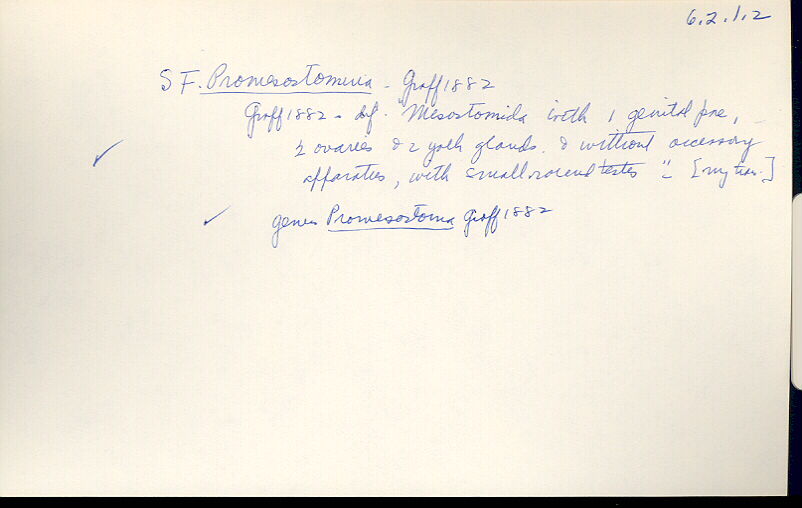 6.2.1.2
S F. Promesostomina - Graff 1882
Graff 1882 - def. "Mesostomida with 1 genital pore,
2 ovaries & 2 yolk glands. & without accessory
apparatus, with small round testes" - [my tran.]
genus Promesostoma Graff 1882